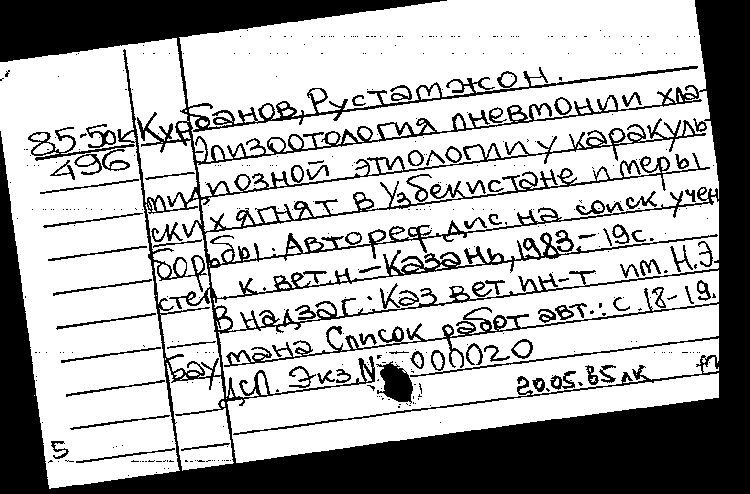 85-50к
496
Курбанов, Рустамжон.
Эпизоотология пневмонии хла-
мидиозной этиологии у каракуль-
ских ягнят в Узбекистане и меры
борьбы: Автореф. дис. на соиск. учен.
степ. к. вет. н. – Казань, 1983. – 19с.
В надзаг.: Каз. вет. ин-т им. Н.Э.
Баумана. Список работ авт.: с. 18-19.
ДСП. Экз. № 000020
20.05.85 лк
5